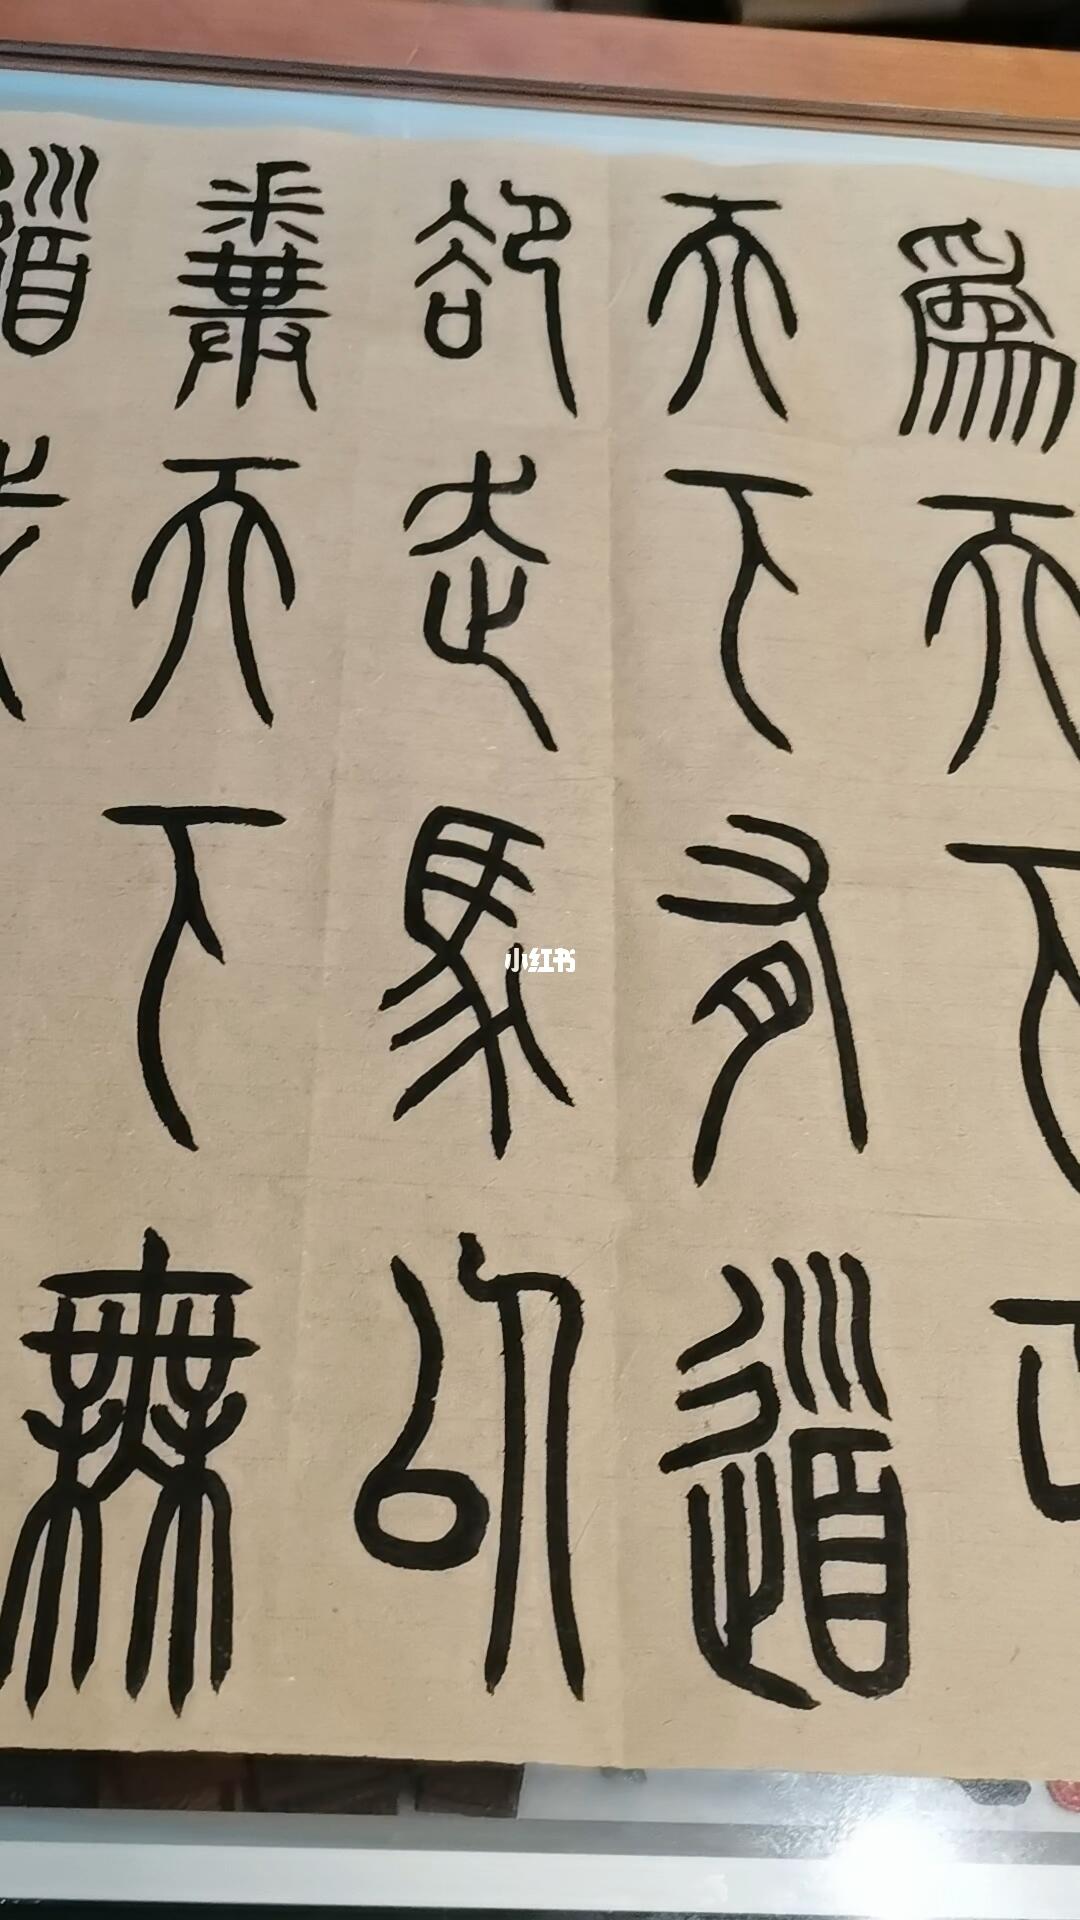 爲天下正
天下有道
卻走馬以
糞天下無
道
小红书